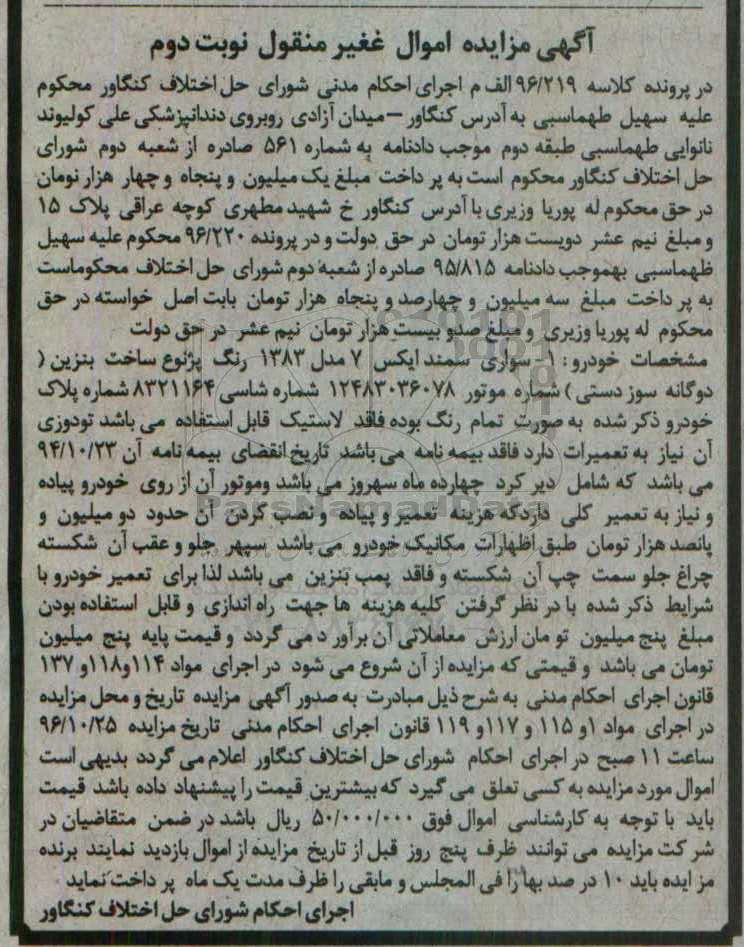 آگهی مزایده اموال غغیر منقول نوبت دوم
در پرونده کلاسه ۹۶/۲۱۹ الف م اجرای احکام مدنی شورای حل اختلاف کنگاور محکوم
علیه سهیل طهماسبی به آدرس کنگاور – میدان آزادی روبروی دندانپزشکی علی کولیوند
نانوایی طهماسبی طبقه دوم موجب دادنامه به شماره ۵۶۱ صادره از شعبه دوم شورای
حل اختلاف کنگاور محکوم است به پر داخت مبلغ یک میلیون و پنجاه و چهار هزار نومان
در حق محکوم له پوریا وزیری با آدرس کنگاور خ شهید مطهری کوچه عراقی پلاک ۱۵
و مبلغ نیم عشر دویست هزار تومان در حق دولت و در پرونده ۹۶/۲۲۰ محکوم علیه سهیل
ظهماسبی بهموجب دادنامه ۹۵/۸۱۵ صادره از شعبه دوم شورای حل اختلاف محکوماست
به پر داخت مبلغ سه میلیون و چهارصد و پنجاه هزار تومان بابت اصل خواسته در حق
محکوم له پوریا وزیری و مبلغ صدو بیست هزار تومان نیم عشر در حق دولت
مشخصات خودرو : ۱- سواری سمند ایکس ۷ مدل ۱۳۸۳ رنگ پژنوع ساخت بنزین (
دوگانه سوز دستی ) شماره موتور ۱۲۴۸۳۰۳۶۰۷۸ شماره شاسی ۸۳۲۱۱۶۴ شماره پلاک
خودرو ذکر شده به صورت تمام رنگ بوده فاقد لاستیک قابل استفاده می باشد تودوزی
آن نیاز به تعمیرات دارد فاقد بیمه نامه می باشد تاریخ انقضای بیمه نامه آن ۹۴/۱۰/۲۳
می باشد که شامل دیر کرد چهارده ماه سهروز می باشد وموتور آن از روی خودرو پیاده
و نیاز به تعمیر کلی داردکه هزینه تعمیر و پیاده و نصب کردن آن حدود دو میلیون و
پانصد هزار تومان طبق اظهارات مکانیک خودرو می باشد سپهر جلو و عقب آن شکسته
چراغ جلو سمت چپ آن شکسته و فاقد پمب بنزین می باشد لذا برای تعمیر خودرو با
شرایط ذکر شده با در نظر گرفتن کلیه هزینه ها جهت راه اندازی و قابل استفاده بودن
مبلغ پنج میلیون تو مان ارزش معاملاتی آن برآور د می گردد و قیمت پایه پنج میلیون
تومان می باشد و قیمتی که مزایده از آن شروع می شود در اجرای مواد ۱۱۴و۱۱۸و ۱۳۷
قانون اجرای احکام مدنی به شرح ذیل مبادرت به صدور آگهی مزایده تاریخ و محل مزایده
در اجرای مواد ۱و ۱۱۵ و ۱۱۷و ۱۱۹ قانون اجرای احکام مدنی تاریخ مزایده ۹۶/۱۰/۲۵
ساعت ۱۱ صبح در اجرای احکام شورای حل اختلاف کنگاور اعلام می گردد بدیهی است
اموال مورد مزایده به کسی تعلق می گیرد که بیشترین قیمت را پیشنهاد داده باشد قیمت
باید با توجه به کارشناسی اموال فوق ۵۰/۰۰۰/۰۰۰ ریال باشد در ضمن متقاضیان در
شر کت مزایده می توانند ظرف پنج روز قبل از تاریخ مزایده از اموال بازدید نمایند برنده
مز ایده باید ۱۰ در صد بها را فی المجلس و مابقی را ظرف مدت یک ماه پر داخت نماید
اجرای احکام شورای حل اختلاف کنگاور